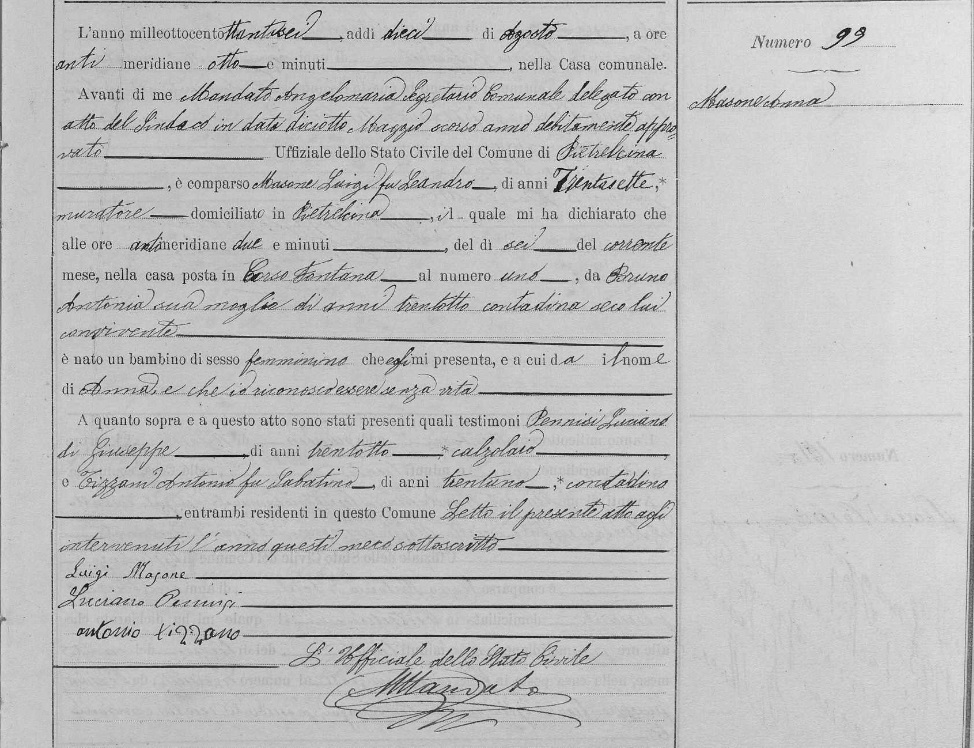 L'anno milleottocentottantasei, addi dieci di Agosto, a ore
anti meridiane otto e minuti, nella Casa comunale.
Avanti di me Mandato Angelomaria Segretario Comunale delegato con
atto del Sindaco in data diciotto Maggio scorso anno debitamente appro
vato Uffiziale dello Stato Civile del Comune di Pietrelcina
, è comparso Masone Luigi fu Leandro, di anni Trentasette,*
muratore domiciliato in Pietrelcina, il quale mi ha dichiarato che
alle ore antimeridiane due e minuti, del dì sei del corrente
mese, nella casa posta in Corso Fontana al numero uno, da Bruno
Antonia sua moglie di anni trentotto contadina seco lui
convivente
è nato un bambino di sesso femminino che egli mi presenta, e a cui dà il nome
di Anna, e che io riconosco essere senza vita
A quanto sopra e a questo atto sono stati presenti quali testimoni Pennisi Luciano
di Giuseppe, di anni trentotto * calzolaio,
e Tizzani Antonio fu Sabatino, di anni trentuno,* contadino
, entrambi residenti in questo Comune Letto il presente atto agli
intervenuti l'anno questi meco sottoscritto
Luigi Masone
Luciano Pennisi
antonio tizzano
L'Uffiziale dello Stato Civile
AMandato
Numero 99
Masone Anna